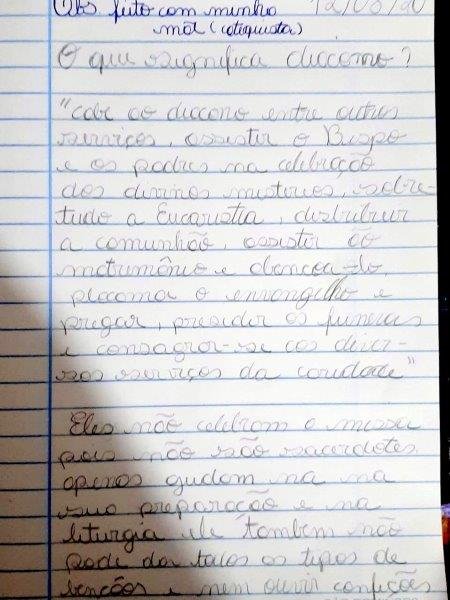 Obs. feito com minha 12/08/20
mãe (catequista)
O que significa diácono?
"cabe ao diácono entre outros
serviços, assistir o Bispo
e os padres na celebração
dos divinos misterios, sobre-
tudo a Eucaristia, distribuir
a comunhão, assistir ao
matrimônio e
o envangelho e
pregar, presidir os funerais
e consagrar-se aos diver-
sos serviços da caridade"
Eles não celebram a missa
pois não são sacerdotes,
apenas ajudam na na
sua preparação e na
liturgia ele também não
pode dar todos os tipos de
bençãos e nem ouvir confições